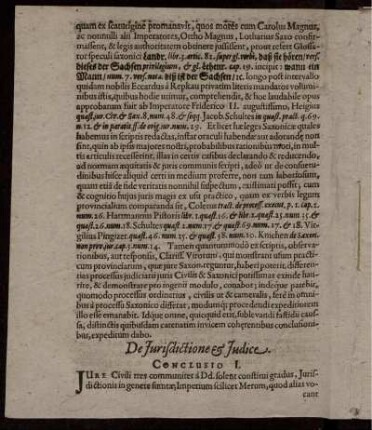 quum ex scaturigine promanavit, quos mores cum Carolus Magnus,
ac nonnulli alii Imperatores, Ortho Magnus, Lotharius Saxo confir-
massent, & legis authoritatem obtinere jussissent, prout refert Glossa-
tor speculi saxonici Landr. lib. 3. artic. 82. super gl. verb. daß ste hören / vers.
dieses der Sachsen privilegium, & gl. lehenr. cap. 19. incipit: wann ein
Mann / num. 7. vers. nota. diß ist der Sachsen / &c. longo post intervallo
quidam nobilis Eccardus à Repkau privatim literis mandatos volumi-
nibus istis, quibus hodie utimur, comprehendit, & hoc laudabile opus
approbatum fuit ab Imperatore Friderico II. augustissimo, Heigius
quæst. jur. Civ. & Sax. 8. num. 48. & seqq. Jacob. Schultes in quæst. pract. q. 69.
n. 12. & in paratis ff. de orig. jur. num. 25. Et licet hæ leges Saxonicæ quales
habemus in scriptis redactas, instar oraculi habendæ aut adorandæ non
sint, quin ab ipsis majores nostri, probabilibus rationibus moti, in mul-
tis articulis recesserint, illas in certis casibus declarando & reducendo,
ad normam æquitatis & juris communis scripti, adeò ut de consuetu-
dinibus hisce aliquid certi in medium proferre, non tam laboriosum,
quam etiā de fide veritatis nonnihil suspectum, existimari possit, cum
& cognitio hujus juris magis ex usu practico, quàm ex verbis legum
provincialium comparanda sit, Colerus tract. de process. execut. p. 1. cap. 2.
num. 26. Hartmannus Pistoris lib. 1. quæst. 16. & lib. 2. quæst. 25. num. 25 &
quæst. 26. num. 18. Schultes quæst. 1. num. 17 & quæst. 69. num. 17. & 18. Vir-
gilius Pingizer quæst. 46. num. 25. & quæst. 58. num. 10. Knichen de Saxon.
non prov. jur. cap. 3. num. 14. Tamen quantum modò ex scriptis, observa-
tionibus, aut responsis, Clariss. Virorum, qui monstrant usum practi-
cum provinciarum, quæ jure Saxon. reguntur, haberi poterit, differen-
tias processus judiciarii juris Civilis & Saxonici potissimas exinde hauri-
re, & demonstrare pro ingenii modulo, conabor; indeque patebit,
quomodo processus ordinarius, civilis ut & cameralis, ferè in omni-
bus à processu Saxonico differat, modumq; procedendi expeditiorem
illo esse emanabit. Idque omne, quicquid erit, sublevandi fastidii cau-
sa, distinctis quibusdam catenatim invicem cohærentibus conclusioni-
bus, expediturus dabo.
De Jurisdictione & Judice.
CONCLUSIO I.
JURE Civili tres communiter à Dd. solent constitui gradus, Juris-
dictionis in genere sumtæ, Imperium scilicet Merum, quod alias vo-
cant